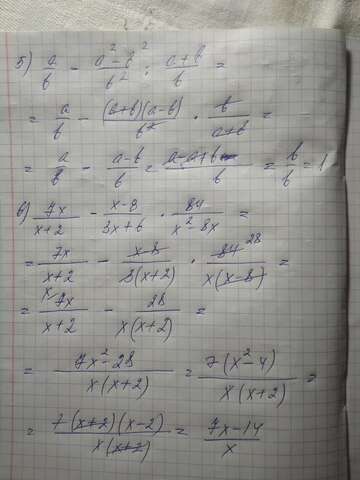 5) a/b - (a² - b²)/b² : (a+b)/b =
= a/b - ((a+b)(a-b))/b² · b/(a+b) =
= a/b - (a-b)/b = (a-a+b)/b = b/b = 1
6) 7x/(x+2) - (x-8)/(3x+6) · 84/(x²-8x) =
= 7x/(x+2) - (x-8)/(3(x+2)) · 84 28/(x(x-8)) =
= x/ 7x/(x+2) - 28/(x(x+2)) =
= (7x²-28)/(x(x+2)) = (7(x²-4))/(x(x+2)) =
= (7(x+2)(x-2))/(x(x+2)) = (7x-14)/x